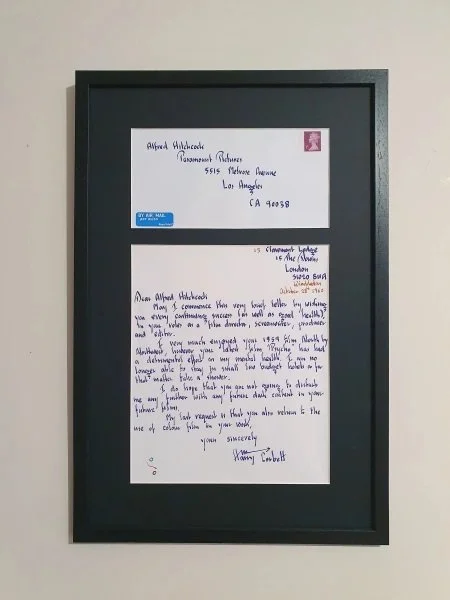 Alfred Hitchcock
Paramount Pictures
5515 Melrose Avenue
Los Angeles
CA 90038
BY AIR MAIL
15 Claremont Lodge
15 The Downs
London
SW20
Wimbledon
October 28th 1960
Dear Alfred Hitchcock
May I commence this very lovely letter by wishing
you every continuing success (as well as good health)
in your roles as a film director, screenwriter, producer
and editor.
I very much enjoyed your 1959 film North by
Northwest, however your latest film 'Psycho' has had
a detrimental effect on my mental health. I am no
longer able to stay in small low budget hotels or for
that matter take a shower.
I do hope that you are not going to disturb
me any further with any future dark content in your
future films.
My last request is that you also return to the
use of colour film in your work,
your sincerely
Harry Corbett